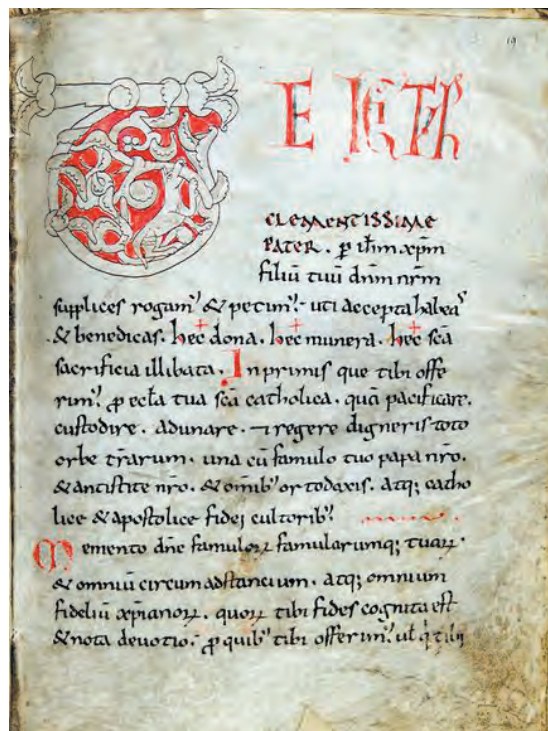 19
TE IGITUR
CLEMENTISSIME
PATER . ꝑ ihm xpm
filiū tuū dnm nrm
supplices rogam᷒ & petim᷒ . uti accepta habeas
& benedicas . hec dona . hec munera . hec scā
sacrificia illibata . In primis que tibi offe
rim᷒ . ꝓ eccła tua scā catholica . quā pacificare .
custodire . adunare . ⁊ regere digneris toto
orbe trārum . una cū famulo tuo papa nr̄o .
& antistite nr̄o . & omīb᷒ ortodoxis . atq; catho
lice & apostolice fidei cultorib᷒
Memento dn̄e famuloꝝ famularumq; tuaꝝ .
& omniū circum adstancium . atq; omnium
fideliū xpianoꝝ . quoꝝ tibi fides cognita est
& nota deuotio . ꝓ quib᷒ tibi offerim᷒ . uł q̇ tibi